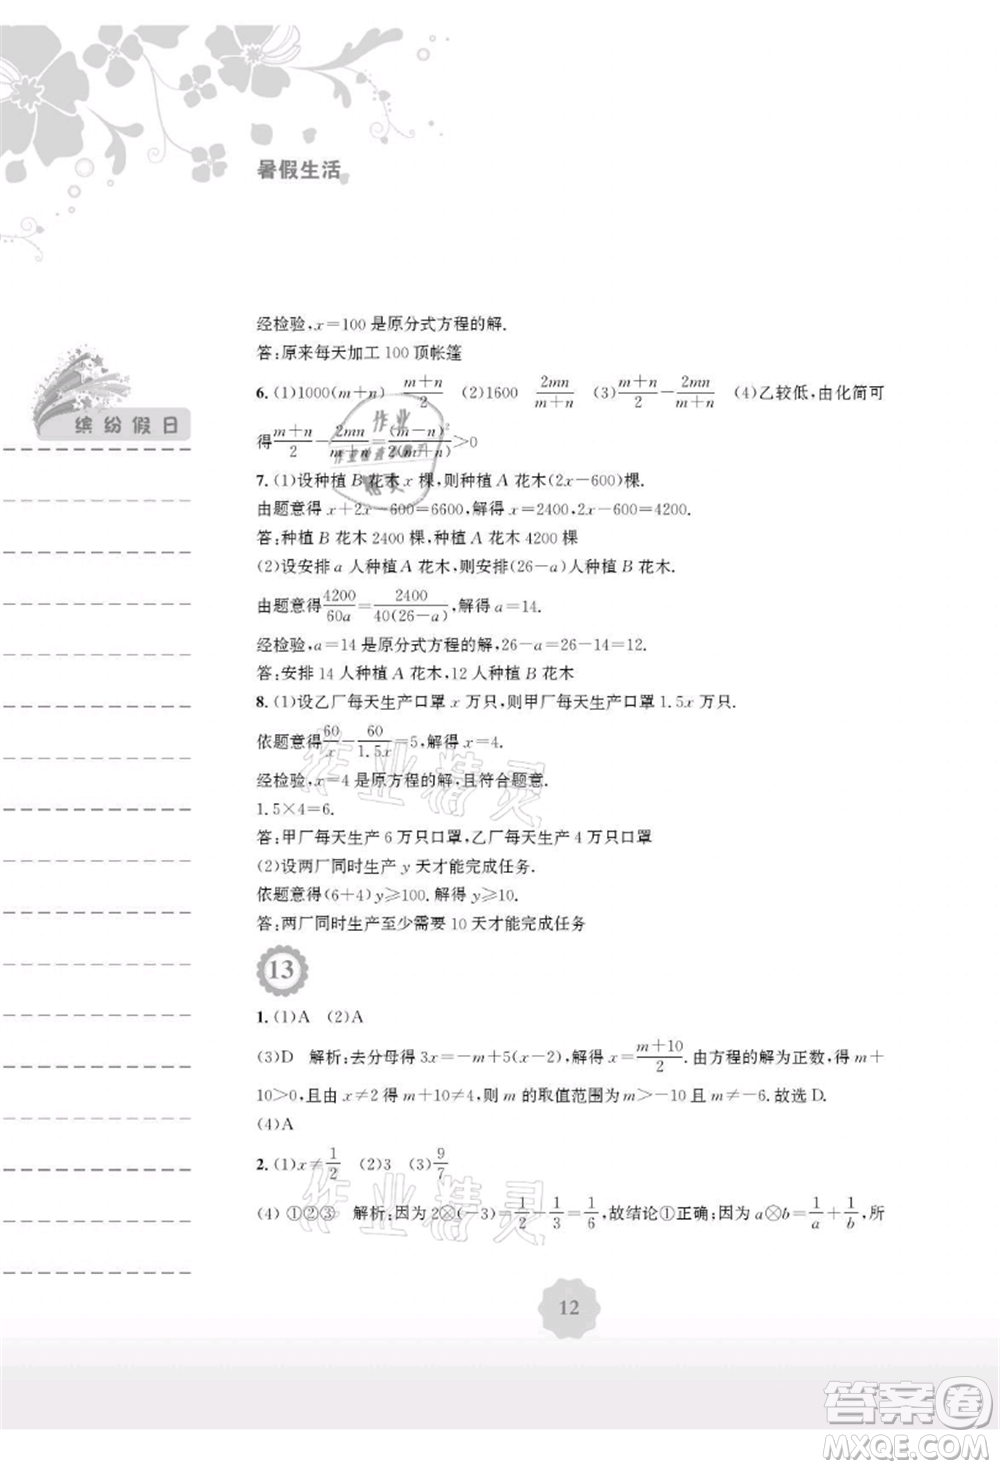 暑假生活
经检验,x=100 是原分式方程的解.
答:原来每天加工 100 顶帐篷
缤纷假日
6. (1)1000(m+n) (m+n)/2 (2)1600 2mn/(m+n) (3)(m+n)/2-2mn/(m+n) (4)乙较低,由化简可
得(m+n)/2-2mn/(m+n)=(m-n)²/2(m+n)>0
7. (1)设种植 B 花木 x 棵,则种植 A 花木(2x-600)棵.
由题意得 x+2x-600=6600,解得 x=2400,2x-600=4200.
答:种植 B 花木 2400 棵,种植 A 花木 4200 棵
(2)设安排 a 人种植 A 花木,则安排(26-a)人种植 B 花木.
由题意得4200/60a=2400/40(26-a),解得 a=14.
经检验,a=14 是原分式方程的解,26-a=26-14=12.
答:安排 14 人种植 A 花木,12 人种植 B 花木
8. (1)设乙厂每天生产口罩 x 万只,则甲厂每天生产口罩 1.5x 万只.
依题意得60/x-60/1.5x=5,解得 x=4.
经检验,x=4 是原方程的解,且符合题意.
1.5×4=6.
答:甲厂每天生产 6 万只口罩,乙厂每天生产 4 万只口罩
(2)设两厂同时生产 y 天才能完成任务.
依题意得(6+4)y⩾100.解得 y⩾10.
答:两厂同时生产至少需要 10 天才能完成任务
13
1. (1)A (2)A
(3)D 解析:去分母得 3x=-m+5(x-2),解得 x=(m+10)/2.由方程的解为正数,得 m+
10>0,且 x≠2 得 m+10≠4,则 m 的取值范围为 m>-10 且 m≠-6.故选 D.
(4)A
2. (1)x≠1/2 (2)3 (3)9/7
(4) ①②③ 解析:因为 2⊗(-3)=1/2-1/3=1/6,故结论①正确;因为 a⊗b=1/a+1/b,所
12
作业精灵
作业精灵
答案圈
MXQE.COM